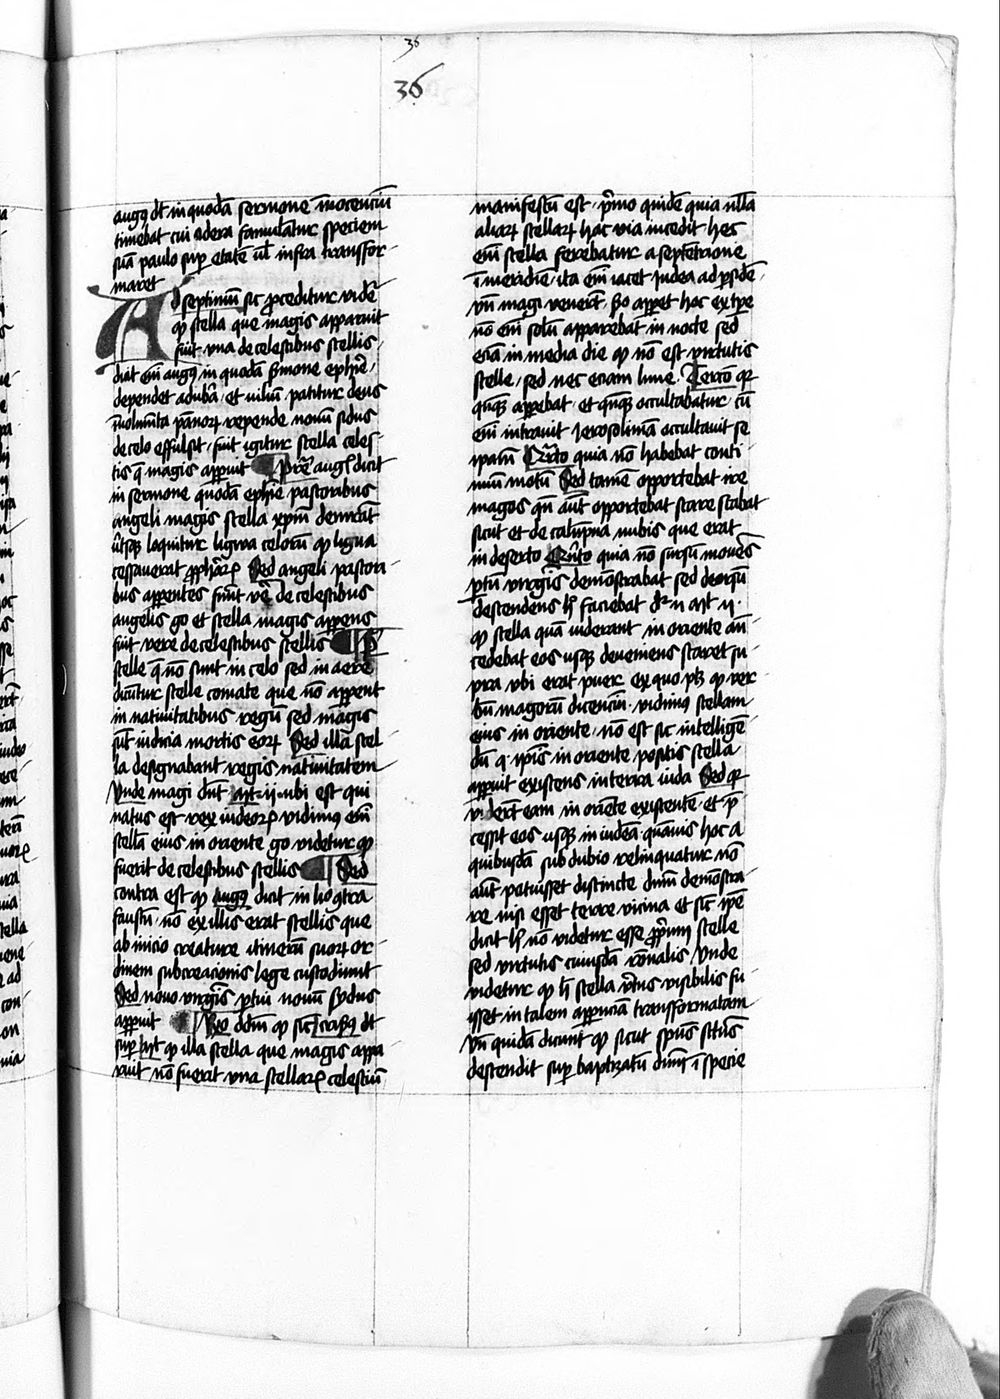 36
36
augꝰ dt in quodā sermone īnocenciū
timebat cui sidera famulātur speciem
suā paulo suꝑ etatē vl̄ infra transfor
maret
Ad septimū sic ꝓceditur vidēr
ꝙ stella que magis apparuit
fuit vna de celestibus stellis
dicit em̄ augꝰ in quodā sermone ephīe
dependet ad ubā et vilium patitur deus
pānorꝝ repende nouū sidus
de celo effulsit fuit igitur stella celes
tis q̄ magis apparuit pret augꝰ dicit
in sermone quodā ephīe pastoribus
angeli magis stella xpm̄ denūciāt
vtrisqꝫ loquitur ligwa celorū ꝙ ligua
cessauerat ꝓphārꝝ Sed angeli pastori
bus appentes fuerūt vē de celestibus
angelis go et stella magis appens
fuit vere de celestibus stellis
stelle q̄ nō sunt in celo sed in aere
dicūtur stelle comate que nō apparent
in natiuitatibus regū sed magis
sūt indicia mortis eorꝝ Sed illa stel
la designabant regis natiuitatem
vnde magi dnt mt ij vbi est qui
natus est rex iudeorꝝ vidimus em̄
stellā eius in oriente go videtur ꝙ
fuerit de celestibus stellis Sed
contra est ꝙ augꝰ dicit in lio cōtra
faustū nō ex illis erat stellis que
ab inicio creature itinerū suorꝝ or
dinem sub creacionis lege custodiunt
Sed nouo virgīs ptui nouū sydus
apparuit Rn̄o ddm̄ ꝙ sic crisꝰ dt
suꝑ mt ꝙ illa stella que magis appa
ruit nō fuerit vna stellarꝝ celestiū
manifestū est pͥmo quidē quia nulla
aliarꝝ stellarꝝ hac via incedit hec
em̄ stella ferebatur a septētrione
ī meridiē ita em̄ iacet iudea ad ꝑsidē
vn̄ magi venerūt Sō appet hoc ex tpe
nō em̄ solū apparebat in nocte sed
eciā in media die ꝙ nō est virtutis
stelle sed nec eciam lune Tercō qr
qn̄qꝫ appebat et qn̄qꝫ occultabatur cū
em̄ intrauit ierosolimā occultauit se
ipam Qͣrto quia nō habebat conti
nuū motū Sed tamē opportebat ire
magos qn̄ aūt opportebat stare stabat
sicut et de calūpna nubis que erat
in deserto Qͥnto quia nō sursū mouēs
ptū virgis demōstrabat sed deorsū
descendens h̄ faciebat dr n mt ij
ꝙ stella quā viderant in oriente an
cedebat eos usqꝫ deueniens staret su
pra vbi erat puer ex quo ptꝫ ꝙ ver
bū magorū dicenciū vidimus stellam
eius in oriente nō est sic intelligē
dū q ipis in oriente positis stella
apparuit existens in terra iuda Sed qr
viderūt eam in oriēte existentē et p̄
cessit eos usqꝫ in iudeā quāuis hoc a
quibusdā sub dubio relinquatur nō
aūt potuisset distincte dnm demōstra
re nisi esset terre vicina et sic ipē
dicit h̄ nō videtur esse ꝓpriū stelle
sed virtutis cuiusdā rōnalis Vnde
videtur ꝙ h̄ stella vͥtus visibilis fu
isset in talem apparēciā transformatam
Vn̄ quidā dicunt ꝙ sicut spūs sctūs
descendit suꝑ baptizatū dnm ī specie